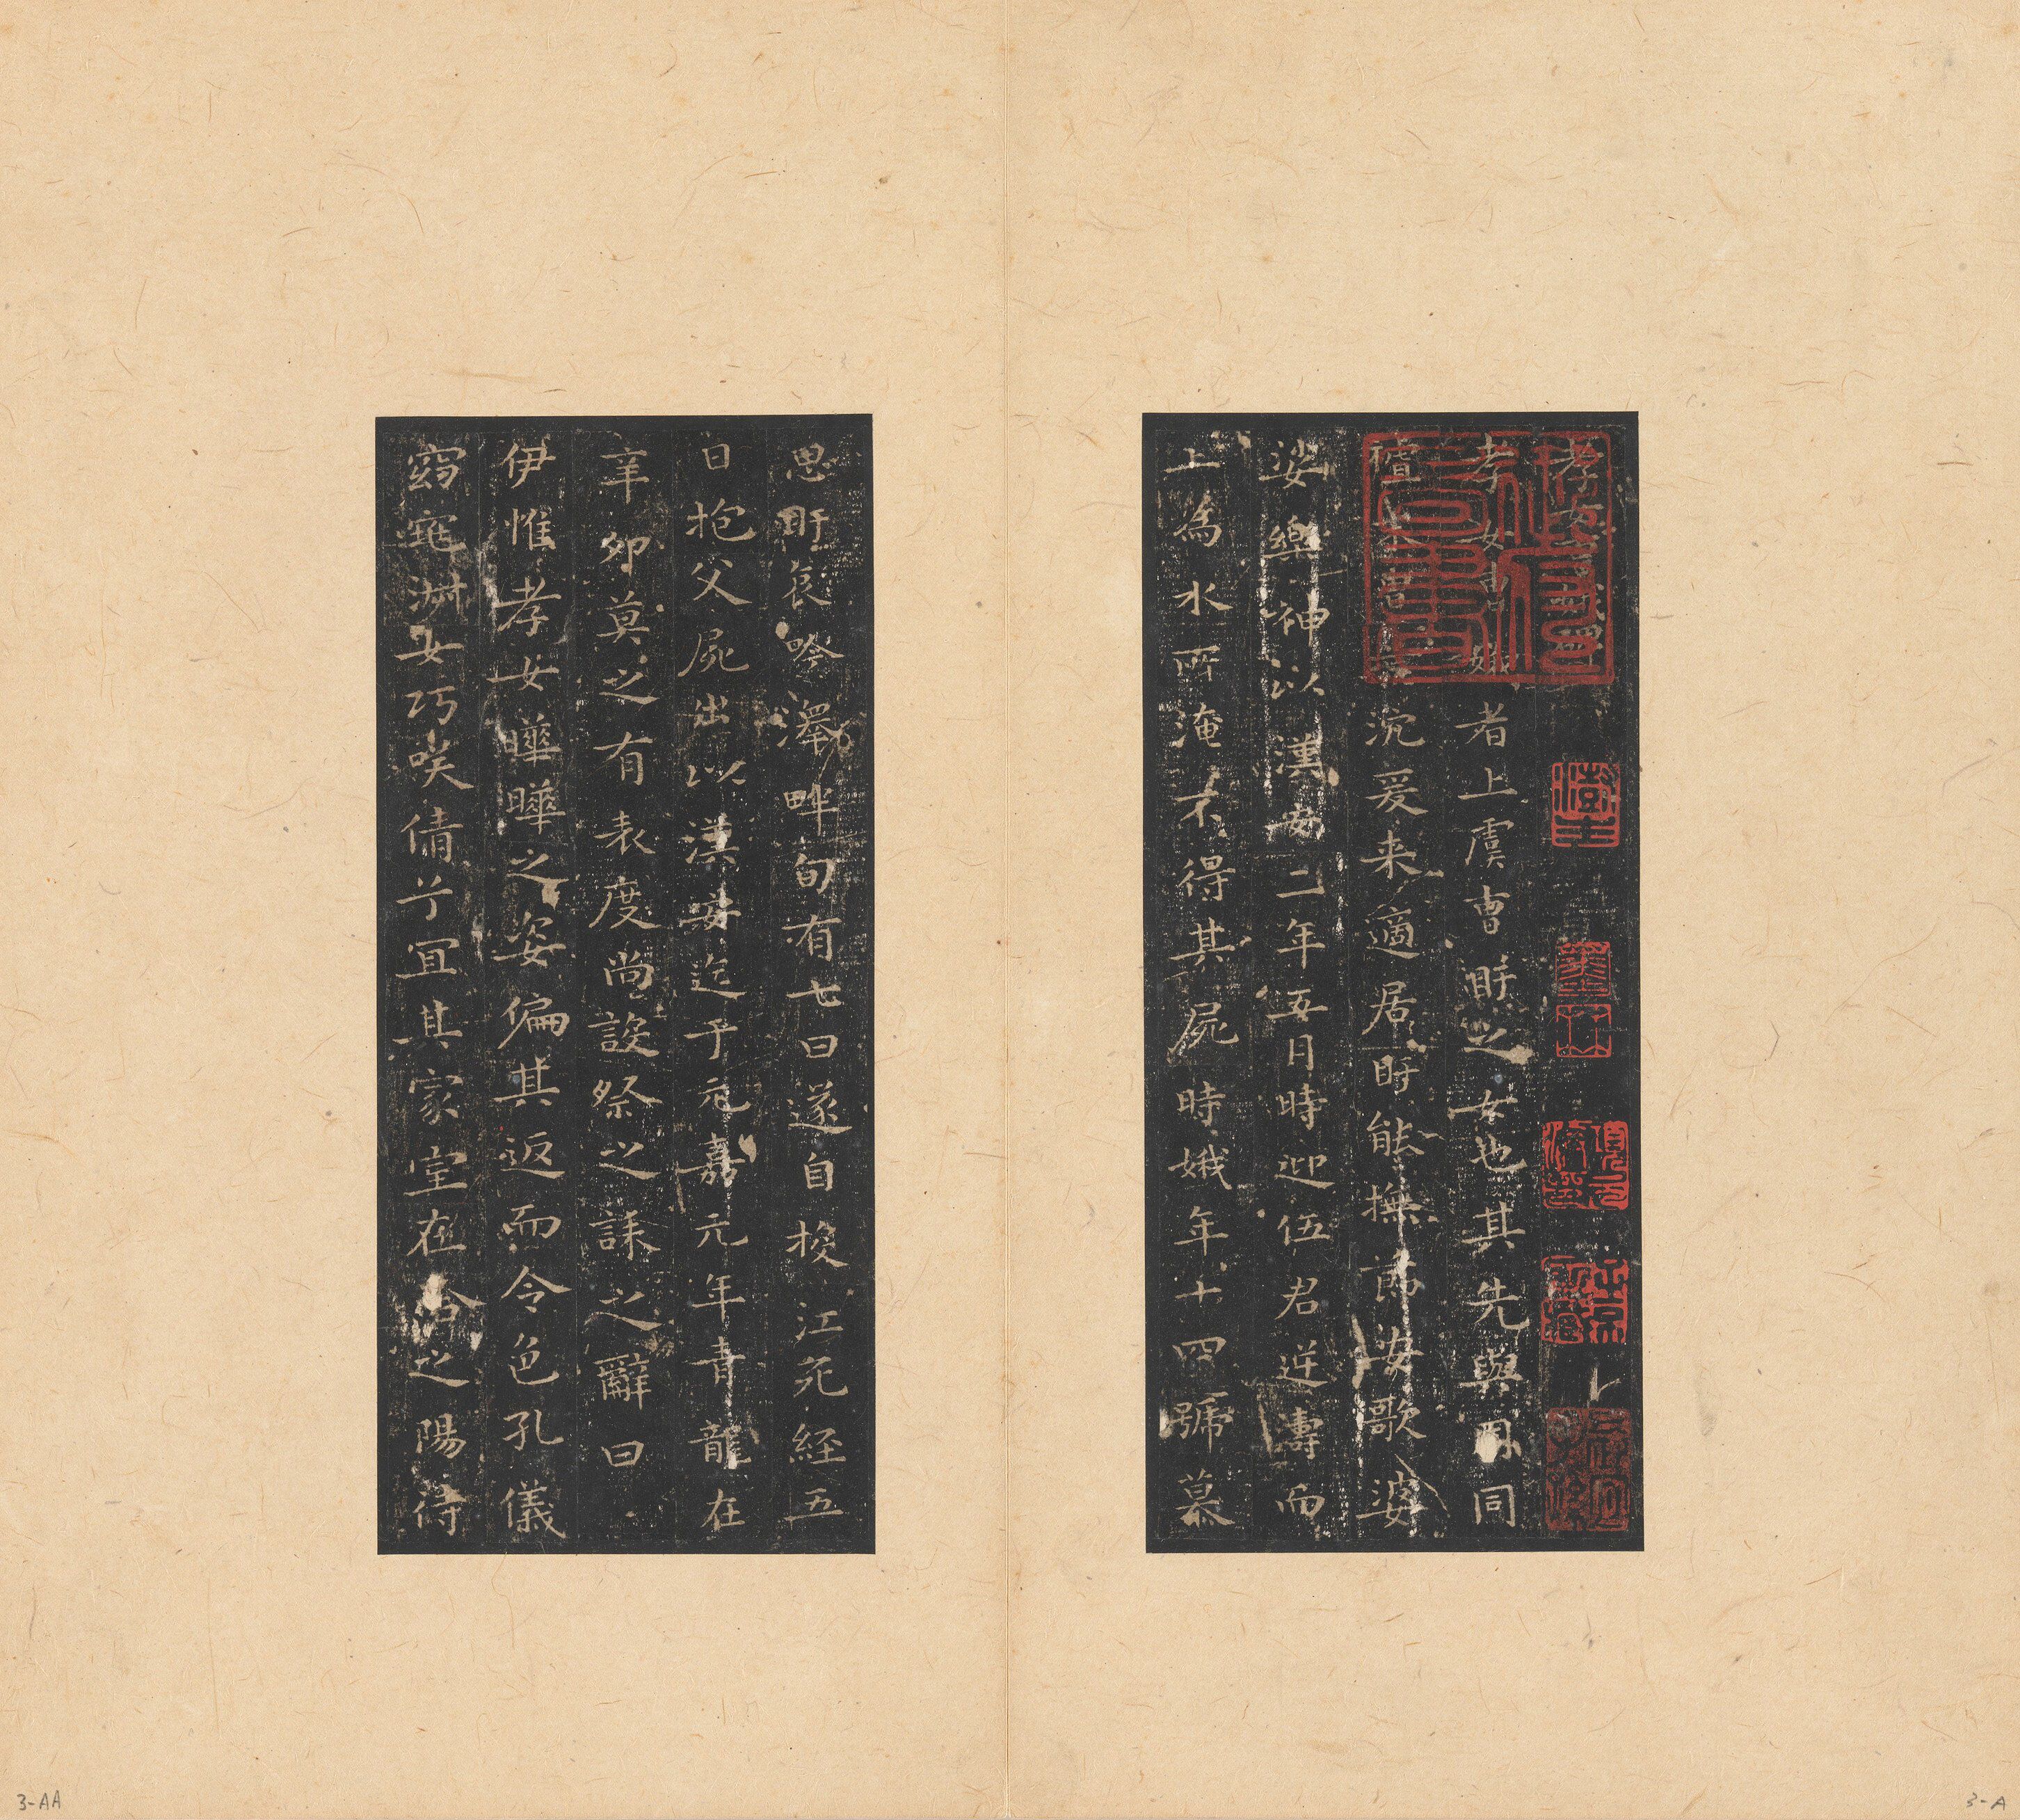 孝女曹娥碑
孝女曹娥者上虞曹盱之女也其先與周同
沉爰来適居盱能撫節安歌婆
娑樂神以漢安二年五月時迎伍君逆濤而
上為水所淹不得其屍時娥年十四號慕
思盱哀吟澤畔旬有七日遂自投江死經五
日抱父屍出以漢安迄于元嘉元年青龍在
辛卯莫之有表度尚設祭之誄之辭曰
伊惟孝女曄曄之姿偏其返而令色孔儀
窈窕淑女巧咲倩兮宜其家室在洽之陽待
3-AA
3-A